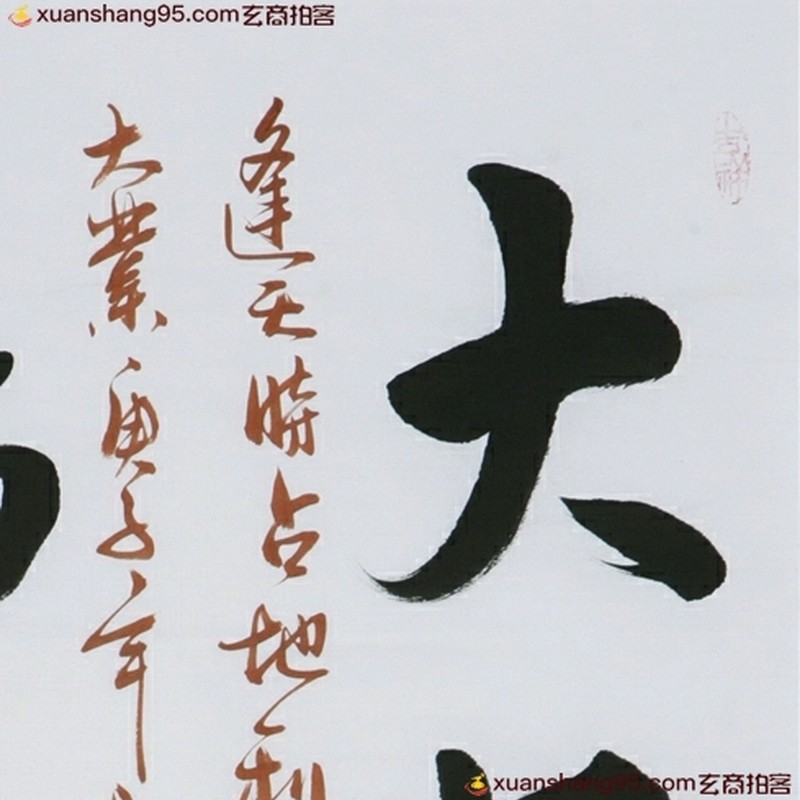 xuanshang95.com玄商拍客
大
逢天時占地利
大業庚子年
xuanshang95.com玄商拍客